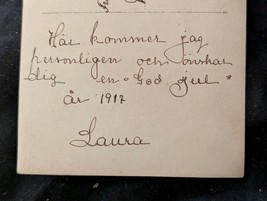 Här kommer jag
personligen och önskar
dig en "God jul"
år 1917
Laura